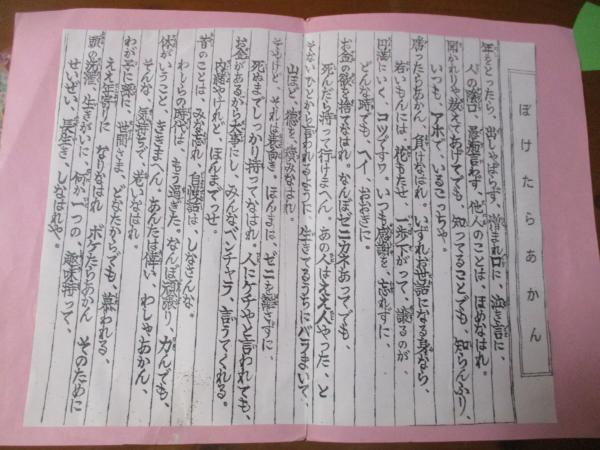 ぼけたらあかん
年をとったら、出しゃばらず、憎まれ口に、泣き言に
人の陰口、愚痴言わず、他人のことは、ほめなはれ。
聞かれりゃ教えてあげてでも、知ってることでも、知らんふり、
いつも、アホで、いるこっちゃ。
勝ったらあかん、負けなはれ。いずれお世話になる身なら、
若いもんには花もたせ、一歩下がって、譲るのが
円満にいく、コツですわ。いつも感謝を、忘れずに、
どんな時でも、ヘイ、おおきに。
お金の欲を捨てなはれ。なんぼゼニカネあってでも、
死んだら持って行けまへん。あの人はええ人やった、と
そないひとから言われるように、生きてるうちにバラまいて、
山ほど、徳を、積みなはれ。
そやけど、それは表向き。ほんまは、ゼニを離さずに、
死ぬまでしっかり持ってなはれ。人にケチやと言われても、
お金があるから大事にし、みんなベンチャラ、言うてくれる。
内証やけれど、ほんまでっせ。
昔のことは、みな忘れ、自慢話は、しなさんな。
わしらの時代は、もう過ぎた。なんぼ頑張り、力んでも、
体がいうこと、ききまへん。あんたは偉い、わしゃあかん、
そんな、気持ちで、おいなはれ。
わが子に孫に、世間さま、どなたからでも、慕われる、
ええ年寄りに、なりなはれ ボケたらあかん そのために
頭の洗濯、生きがいに、何か一つの、趣味持って、
せいぜい、長生き、しなはれや。